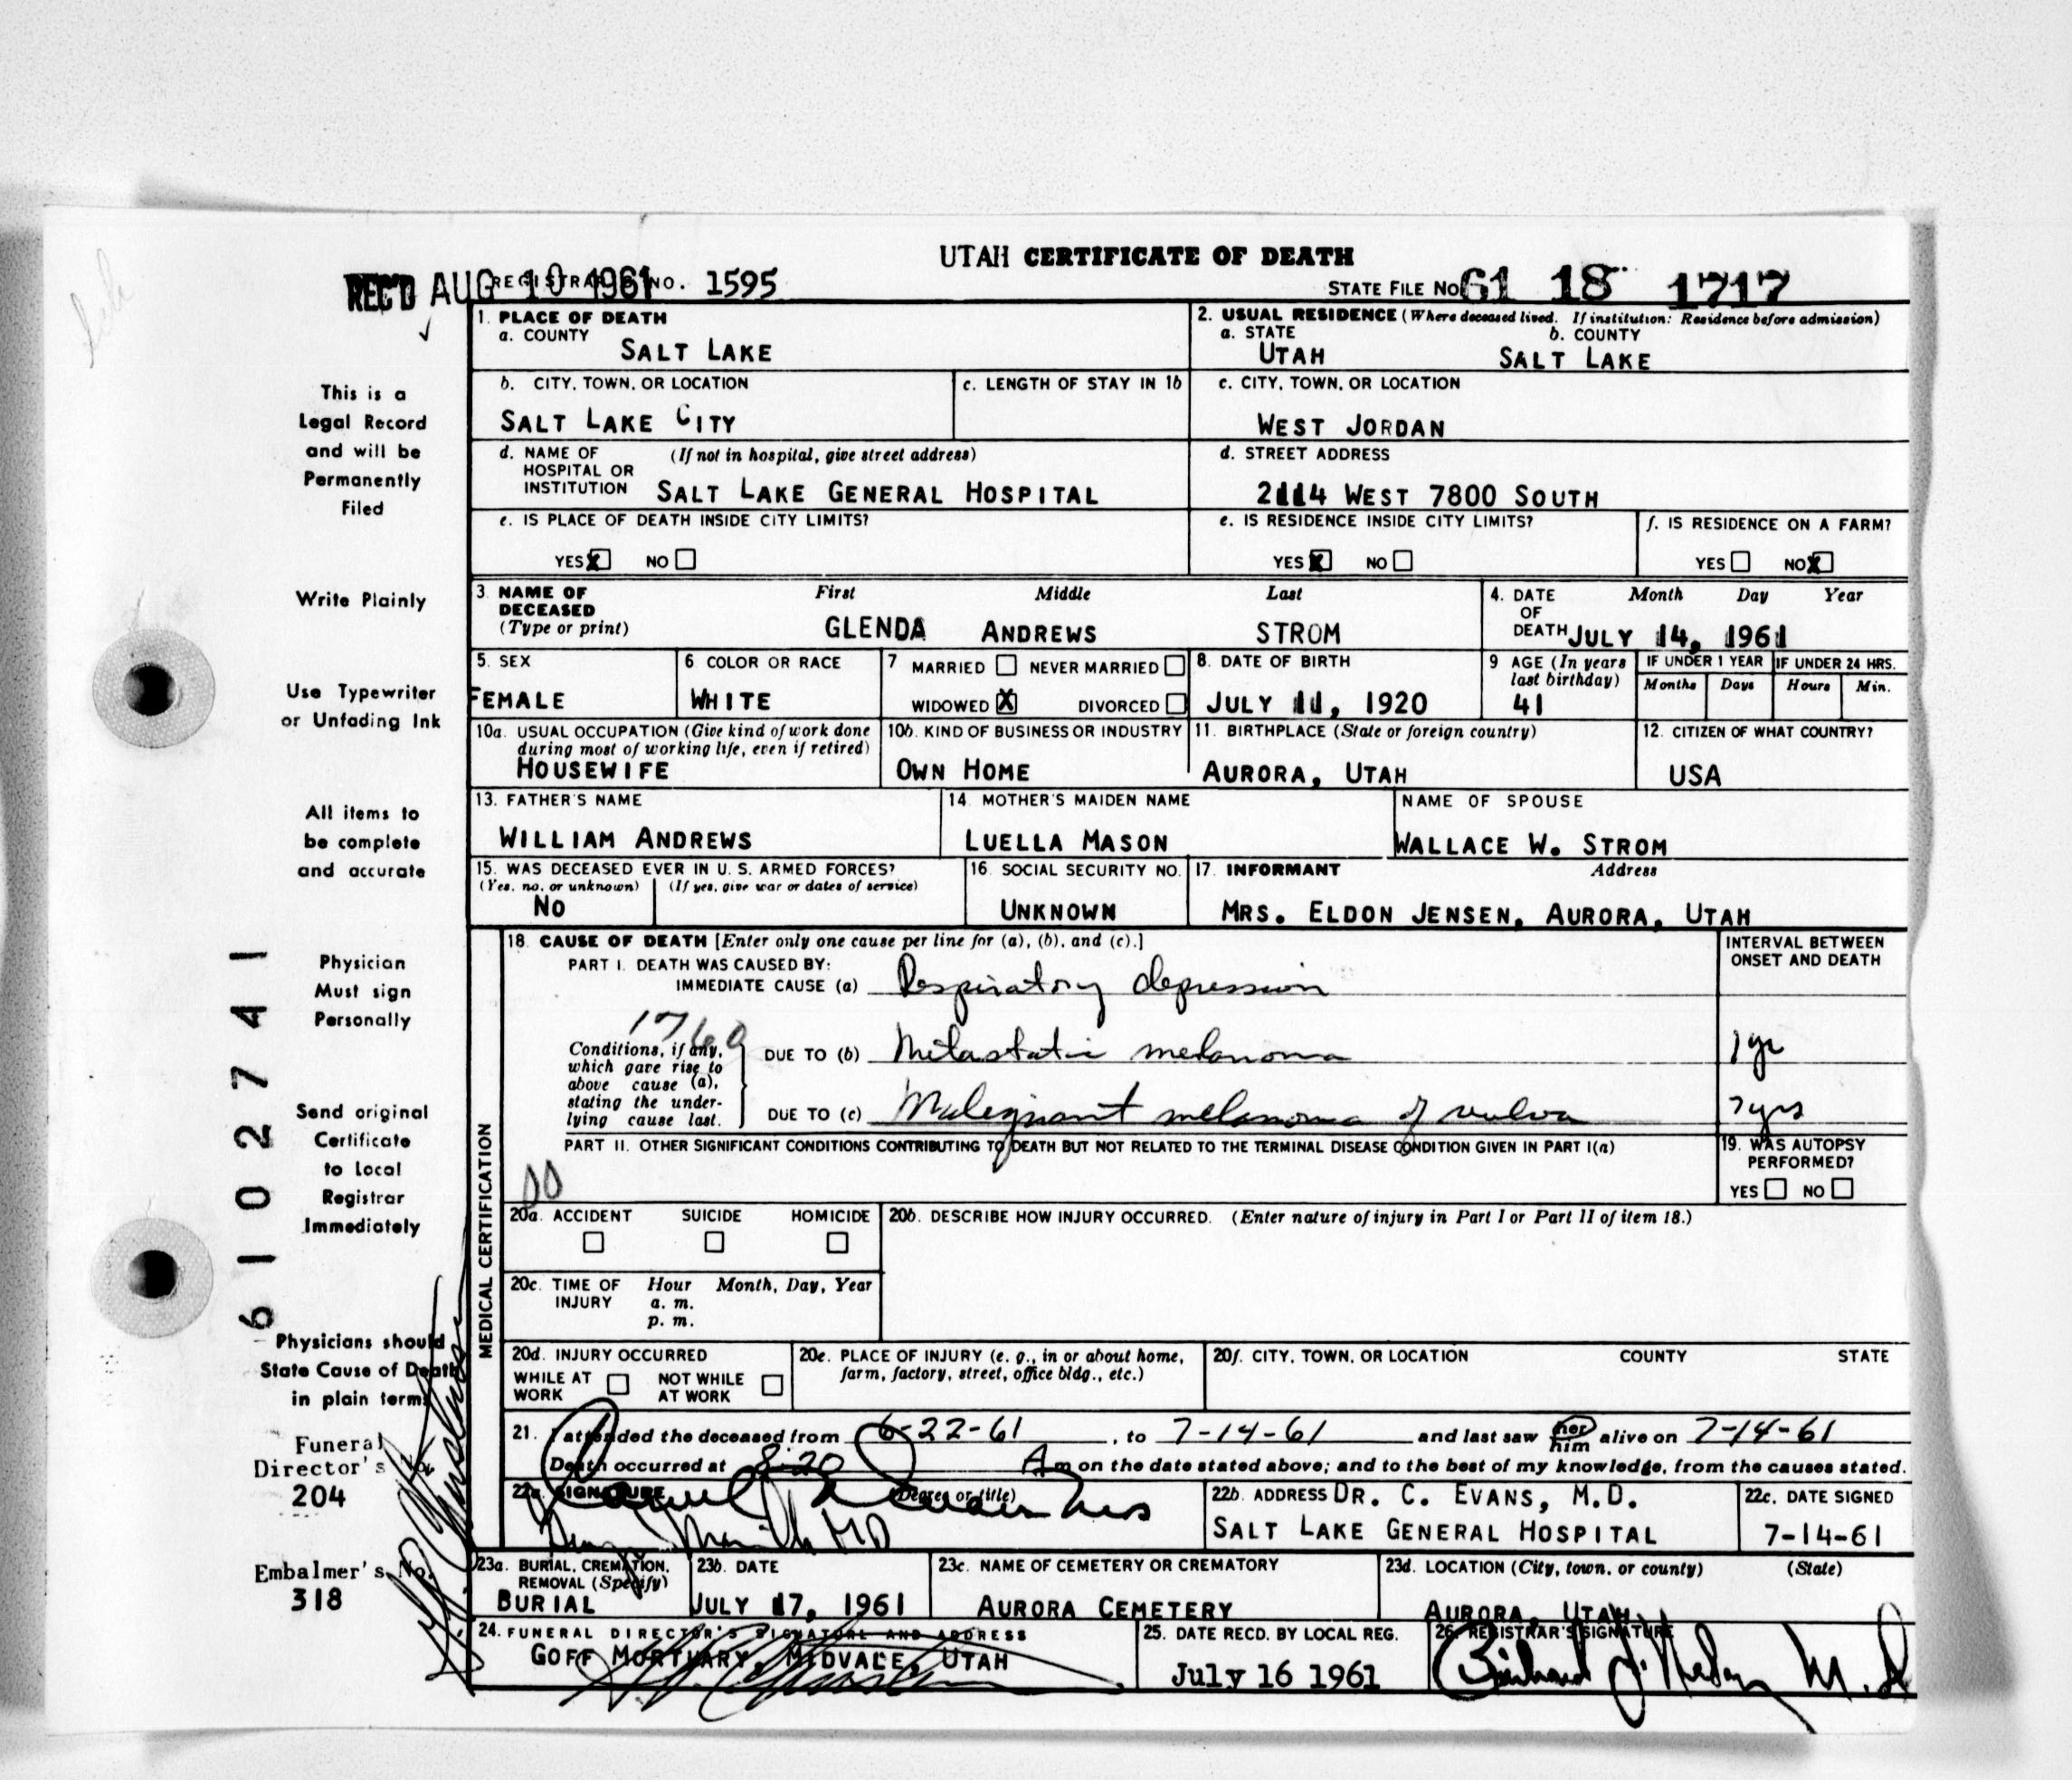 UTAH CERTIFICATE OF DEATH
REC'D AUG 10 1961 REGISTRAR'S NO. 1595
STATE FILE NO. 61 18 1717
1. PLACE OF DEATH
a. COUNTY
SALT LAKE
2. USUAL RESIDENCE (Where deceased lived. If institution: Residence before admission)
a. STATE b. COUNTY
UTAH SALT LAKE
b. CITY, TOWN, OR LOCATION
SALT LAKE CITY
c. LENGTH OF STAY IN 1b
c. CITY, TOWN, OR LOCATION
WEST JORDAN
d. NAME OF HOSPITAL OR INSTITUTION (If not in hospital, give street address)
SALT LAKE GENERAL HOSPITAL
d. STREET ADDRESS
2114 WEST 7800 SOUTH
e. IS PLACE OF DEATH INSIDE CITY LIMITS?
YES X NO
e. IS RESIDENCE INSIDE CITY LIMITS?
YES X NO
f. IS RESIDENCE ON A FARM?
YES NO X
3. NAME OF DECEASED (Type or print)
First Middle Last
GLENDA ANDREWS STROM
4. DATE OF DEATH Month Day Year
JULY 14, 1961
5. SEX
FEMALE
6 COLOR OR RACE
WHITE
7 MARRIED NEVER MARRIED
WIDOWED X DIVORCED
8. DATE OF BIRTH
JULY 11, 1920
9 AGE (In years last birthday)
41
IF UNDER 1 YEAR IF UNDER 24 HRS.
Months Days Hours Min.
10a. USUAL OCCUPATION (Give kind of work done during most of working life, even if retired)
HOUSEWIFE
10b. KIND OF BUSINESS OR INDUSTRY
OWN HOME
11. BIRTHPLACE (State or foreign country)
AURORA, UTAH
12. CITIZEN OF WHAT COUNTRY?
USA
13. FATHER'S NAME
WILLIAM ANDREWS
14 MOTHER'S MAIDEN NAME
LUELLA MASON
NAME OF SPOUSE
WALLACE W. STROM
15. WAS DECEASED EVER IN U. S. ARMED FORCES?
(Yes, no, or unknown) (If yes, give war or dates of service)
NO
16. SOCIAL SECURITY NO.
UNKNOWN
17. INFORMANT Address
MRS. ELDON JENSEN, AURORA, UTAH
MEDICAL CERTIFICATION
18. CAUSE OF DEATH [Enter only one cause per line for (a), (b), and (c).]
INTERVAL BETWEEN ONSET AND DEATH
PART I. DEATH WAS CAUSED BY:
IMMEDIATE CAUSE (a) Respiratory depression
Conditions, if any, which gave rise to above cause (a), stating the underlying cause last.
DUE TO (b) Metastatic melanoma 1 yr
DUE TO (c) Malignant melanoma of vulva 7 yrs
PART II. OTHER SIGNIFICANT CONDITIONS CONTRIBUTING TO DEATH BUT NOT RELATED TO THE TERMINAL DISEASE CONDITION GIVEN IN PART I(a)
19. WAS AUTOPSY PERFORMED?
YES NO
20a. ACCIDENT SUICIDE HOMICIDE
20b. DESCRIBE HOW INJURY OCCURRED. (Enter nature of injury in Part I or Part II of item 18.)
20c. TIME OF INJURY Hour Month, Day, Year
a. m.
p. m.
20d. INJURY OCCURRED
WHILE AT WORK NOT WHILE AT WORK
20e. PLACE OF INJURY (e. g., in or about home, farm, factory, street, office bldg., etc.)
20f. CITY, TOWN, OR LOCATION COUNTY STATE
21. I attended the deceased from 6-22-61, to 7-14-61 and last saw her him alive on 7-14-61
Death occurred at 8:20 A m on the date stated above; and to the best of my knowledge, from the causes stated.
22a. SIGNATURE (Degree or title)
22b. ADDRESS DR. C. EVANS, M.D.
SALT LAKE GENERAL HOSPITAL
22c. DATE SIGNED
7-14-61
23a. BURIAL, CREMATION, REMOVAL (Specify)
BURIAL
23b. DATE
JULY 17, 1961
23c. NAME OF CEMETERY OR CREMATORY
AURORA CEMETERY
23d. LOCATION (City, town, or county) (State)
AURORA, UTAH
24. FUNERAL DIRECTOR'S SIGNATURE AND ADDRESS
GOFF MORTUARY, MIDVALE, UTAH
25. DATE RECD. BY LOCAL REG.
July 16 1961
26. REGISTRAR'S SIGNATURE
This is a
Legal Record
and will be
Permanently
Filed
Write Plainly
Use Typewriter
or Unfading Ink
All items to
be complete
and accurate
Physician
Must sign
Personally
Send original
Certificate
to Local
Registrar
Immediately
Physicians should
State Cause of Death
in plain terms
Funeral
Director's No.
204
Embalmer's No.
318
6102741